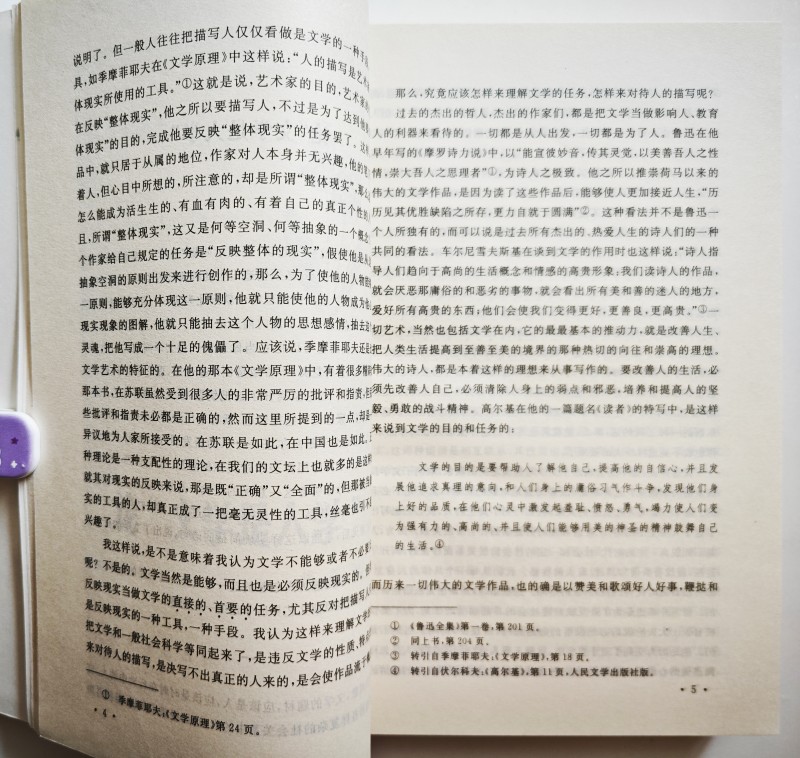 说明了。但一般人往往把描写人仅仅看做是文学的一种手
具,如季摩菲耶夫在《文学原理》中这样说:“人的描写是艺术
体现实所使用的工具。”①这就是说,艺术家的目的,艺术家的
在反映“整体现实”,他之所以要描写人,不过是为了达到他
体现实”的目的,完成他要反映“整体现实”的任务罢了。这
品中,就只居于从属的地位,作家对人本身并无兴趣,他的
着人,但心目中所想的,所注意的,却是所谓“整体现实”,那
怎么能成为活生生的、有血有肉的、有着自己的真正个性的
且,所谓“整体现实”,这又是何等空洞、何等抽象的一个概念
个作家给自己规定的任务是“反映整体的现实”,假使他是从
抽象空洞的原则出发来进行创作的,那么,为了使他的人物
一原则,能够充分体现这一原则,他就只能使他的人物成为他
现实现象的图解,他就只能抽去这个人物的思想感情,抽去
灵魂,把他写成一个十足的傀儡了。应该说,季摩菲耶夫还是
文学艺术的特征的。在他的那本《文学原理》中,有着很多精
那本书,在苏联虽然受到很多人的非常严厉的批评和指责,但
些批评和指责未必都是正确的,然而这里所提到的一点,却是
异议地为人家所接受的。在苏联是如此,在中国也是如此。
种理论是一种支配性的理论,在我们的文坛上也就多的是这样
就其对现实的反映来说,那是既“正确”又“全面”的,但那被当
实的工具的人,却真正成了一把毫无灵性的工具,丝毫也引不
兴趣了。
我这样说,是不是意味着我认为文学不能够或者不必要
呢?不是的。文学当然是能够,而且也是必须反映现实的。但
反映现实当做文学的直接的、首要的任务,尤其反对把描写人
是反映现实的一种工具,一种手段。我认为这样来理解文学的
把文学和一般社会科学等同起来了,是违反文学的性质、特
来对待人的描写,是决写不出真正的人来的,是会使作品流于
① 季摩菲耶夫:《文学原理》第24页。
·4·
那么,究竟应该怎样来理解文学的任务,怎样来对待人的描写呢?
过去的杰出的哲人,杰出的作家们,都是把文学当做影响人、教育
人的利器来看待的。一切都是从人出发,一切都是为了人。鲁迅在他
早年写的《摩罗诗力说》中,以“能宣彼妙音,传其灵觉,以美善吾人之性
情,崇大吾人之思理者”①,为诗人之极致。他之所以推崇荷马以来的
伟大的文学作品,是因为读了这些作品后,能够使人更加接近人生,“历
历见其优胜缺陷之所存,更力自就于圆满”②。这种看法并不是鲁迅一
个人所独有的,而可以说是过去所有杰出的、热爱人生的诗人们的一种
共同的看法。车尔尼雪夫斯基在谈到文学的作用时也这样说:“诗人指
导人们趋向于高尚的生活概念和情感的高贵形象;我们读诗人的作品,
就会厌恶那庸俗的和恶劣的事物,就会看出所有美和善的迷人的地方,
爱好所有高贵的东西;他们会使我们变得更好,更善良,更高贵。”③一
切艺术,当然也包括文学在内,它的最最基本的推动力,就是改善人生、
把人类生活提高到至善至美的境界的那种热切的向往和崇高的理想。
伟大的诗人,都是本着这样的理想来从事写作的。要改善人的生活,必
须先改善人自己,必须清除人身上的弱点和邪恶,培养和提高人的坚
毅、勇敢的战斗精神。高尔基在他的一篇题名《读者》的特写中,是这样
来说到文学的目的和任务的:
文学的目的是要帮助人了解他自己,提高他的自信心,并且发
展他追求真理的意向,和人们身上的庸俗习气作斗争,发现他们身
上好的品质,在他们心灵中激发起羞耻、愤怒、勇气、竭力使人们变
为强有力的、高尚的、并且使人们能够用美的神圣的精神鼓舞自己
的生活。④
而历来一切伟大的文学作品,也的确是以赞美和歌颂好人好事,鞭挞和
① 《鲁迅全集》第一卷,第201页。
② 同上书,第204页。
③ 转引自季摩菲耶夫:《文学原理》,第18页。
④ 转引自伏尔科夫:《高尔基》,第11页,人民文学出版社版。
·5·